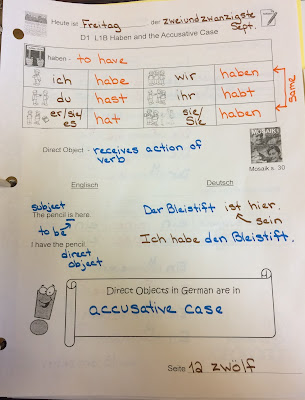 Heute ist Freitag der zweiundzwanzigste
Sept.
D1 L1B Haben and the Accusative Case
haben - to have
ich habe wir haben
du hast ihr habt
er/sie/es hat sie/Sie haben
same
Direct Object - receives action of
verb
MOSAIK
Mosaik s. 30
Englisch Deutsch
subject
The pencil is here. Der Bleistift ist hier.
to be sein
I have the pencil. Ich habe den Bleistift.
direct
object
Direct Objects in German are in
accusative case
Seite 12 zwölf